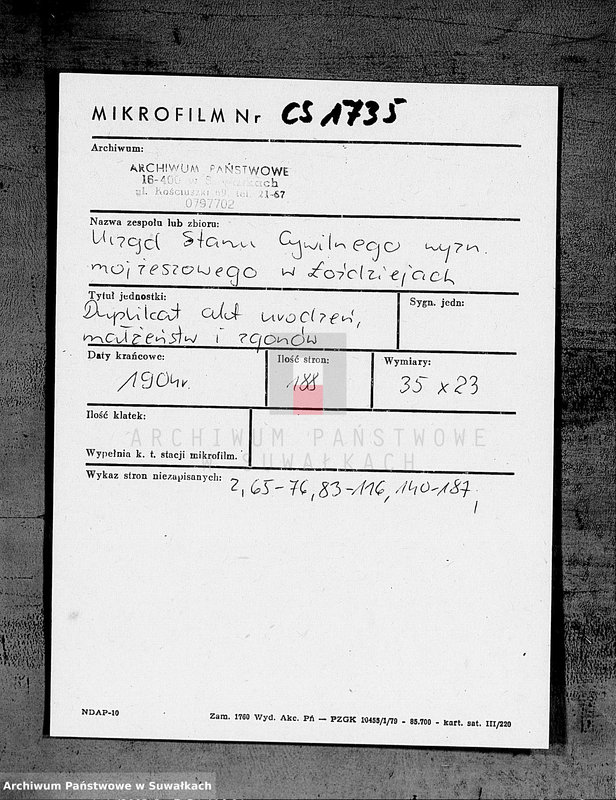 MIKROFILM Nr CS 1735
Archiwum:
ARCHIWUM PAŃSTWOWE
16-400 w Suwałkach
ul. Kościuszki 69, tel. 21-67
0797702
Nazwa zespołu lub zbioru:
Urząd Stanu Cywilnego wyzn.
mojżeszowego w Łoździejach
Tytuł jednostki:
Duplikat akt urodzeń,
małżeństw i zgonów
Sygn. jedn:
Daty krańcowe:
1904r.
Ilość stron:
188
Wymiary:
35 x 23
Ilość klatek:
Wypełnia k. t. stacji mikrofilm.
ARCHIWUM PAŃSTWOWE
W SUWAŁKACH
Wykaz stron niezapisanych: 2, 65-76, 83-116, 140-187,
NDAP-10
Zam. 1760 Wyd. Akc. Pń — PZGK 10455/1/79 - 85.700 - kart. sat. III/220
Archiwum Państwowe w Suwałkach